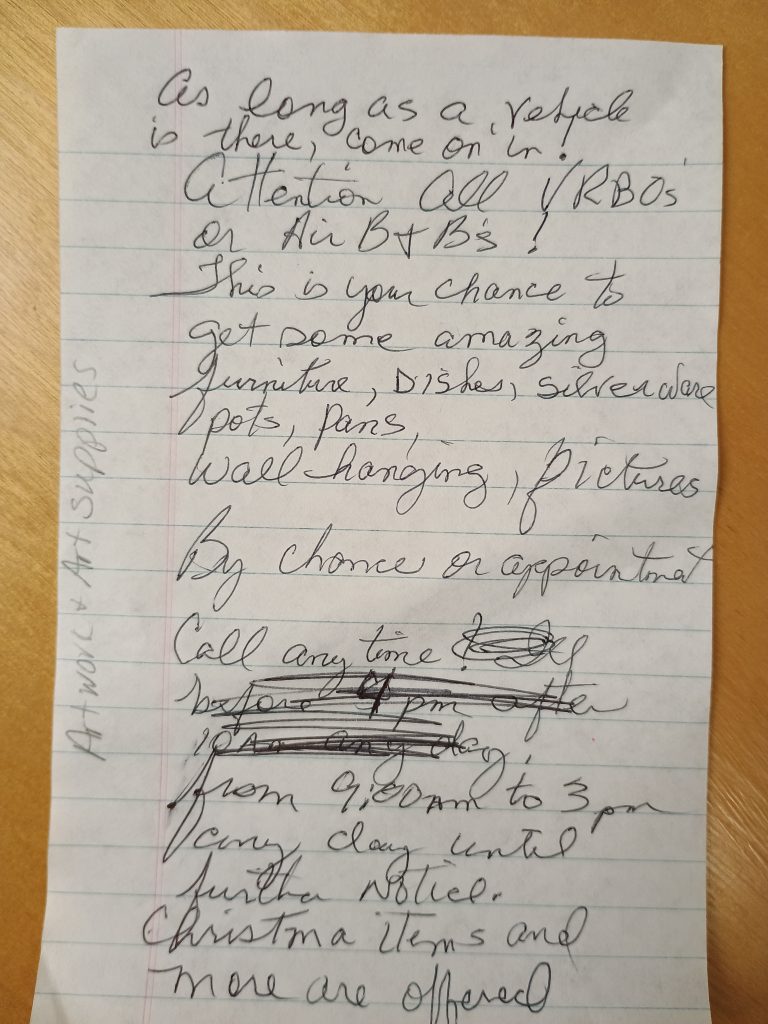 As long as a vehicle
is there, come on in!
Attention All VRBO's
or Air B+B's!
This is your chance to
get some amazing
furniture, Dishes, silverware
pots, pans,
wall hanging, pictures
By chance or appointmet
Call any time!
before 4 pm after
10 Am any day,
from 9:00 Am to 3 pm
any day until
further Notice.
Christma items and
more are offered
Artwork + Art Supplies